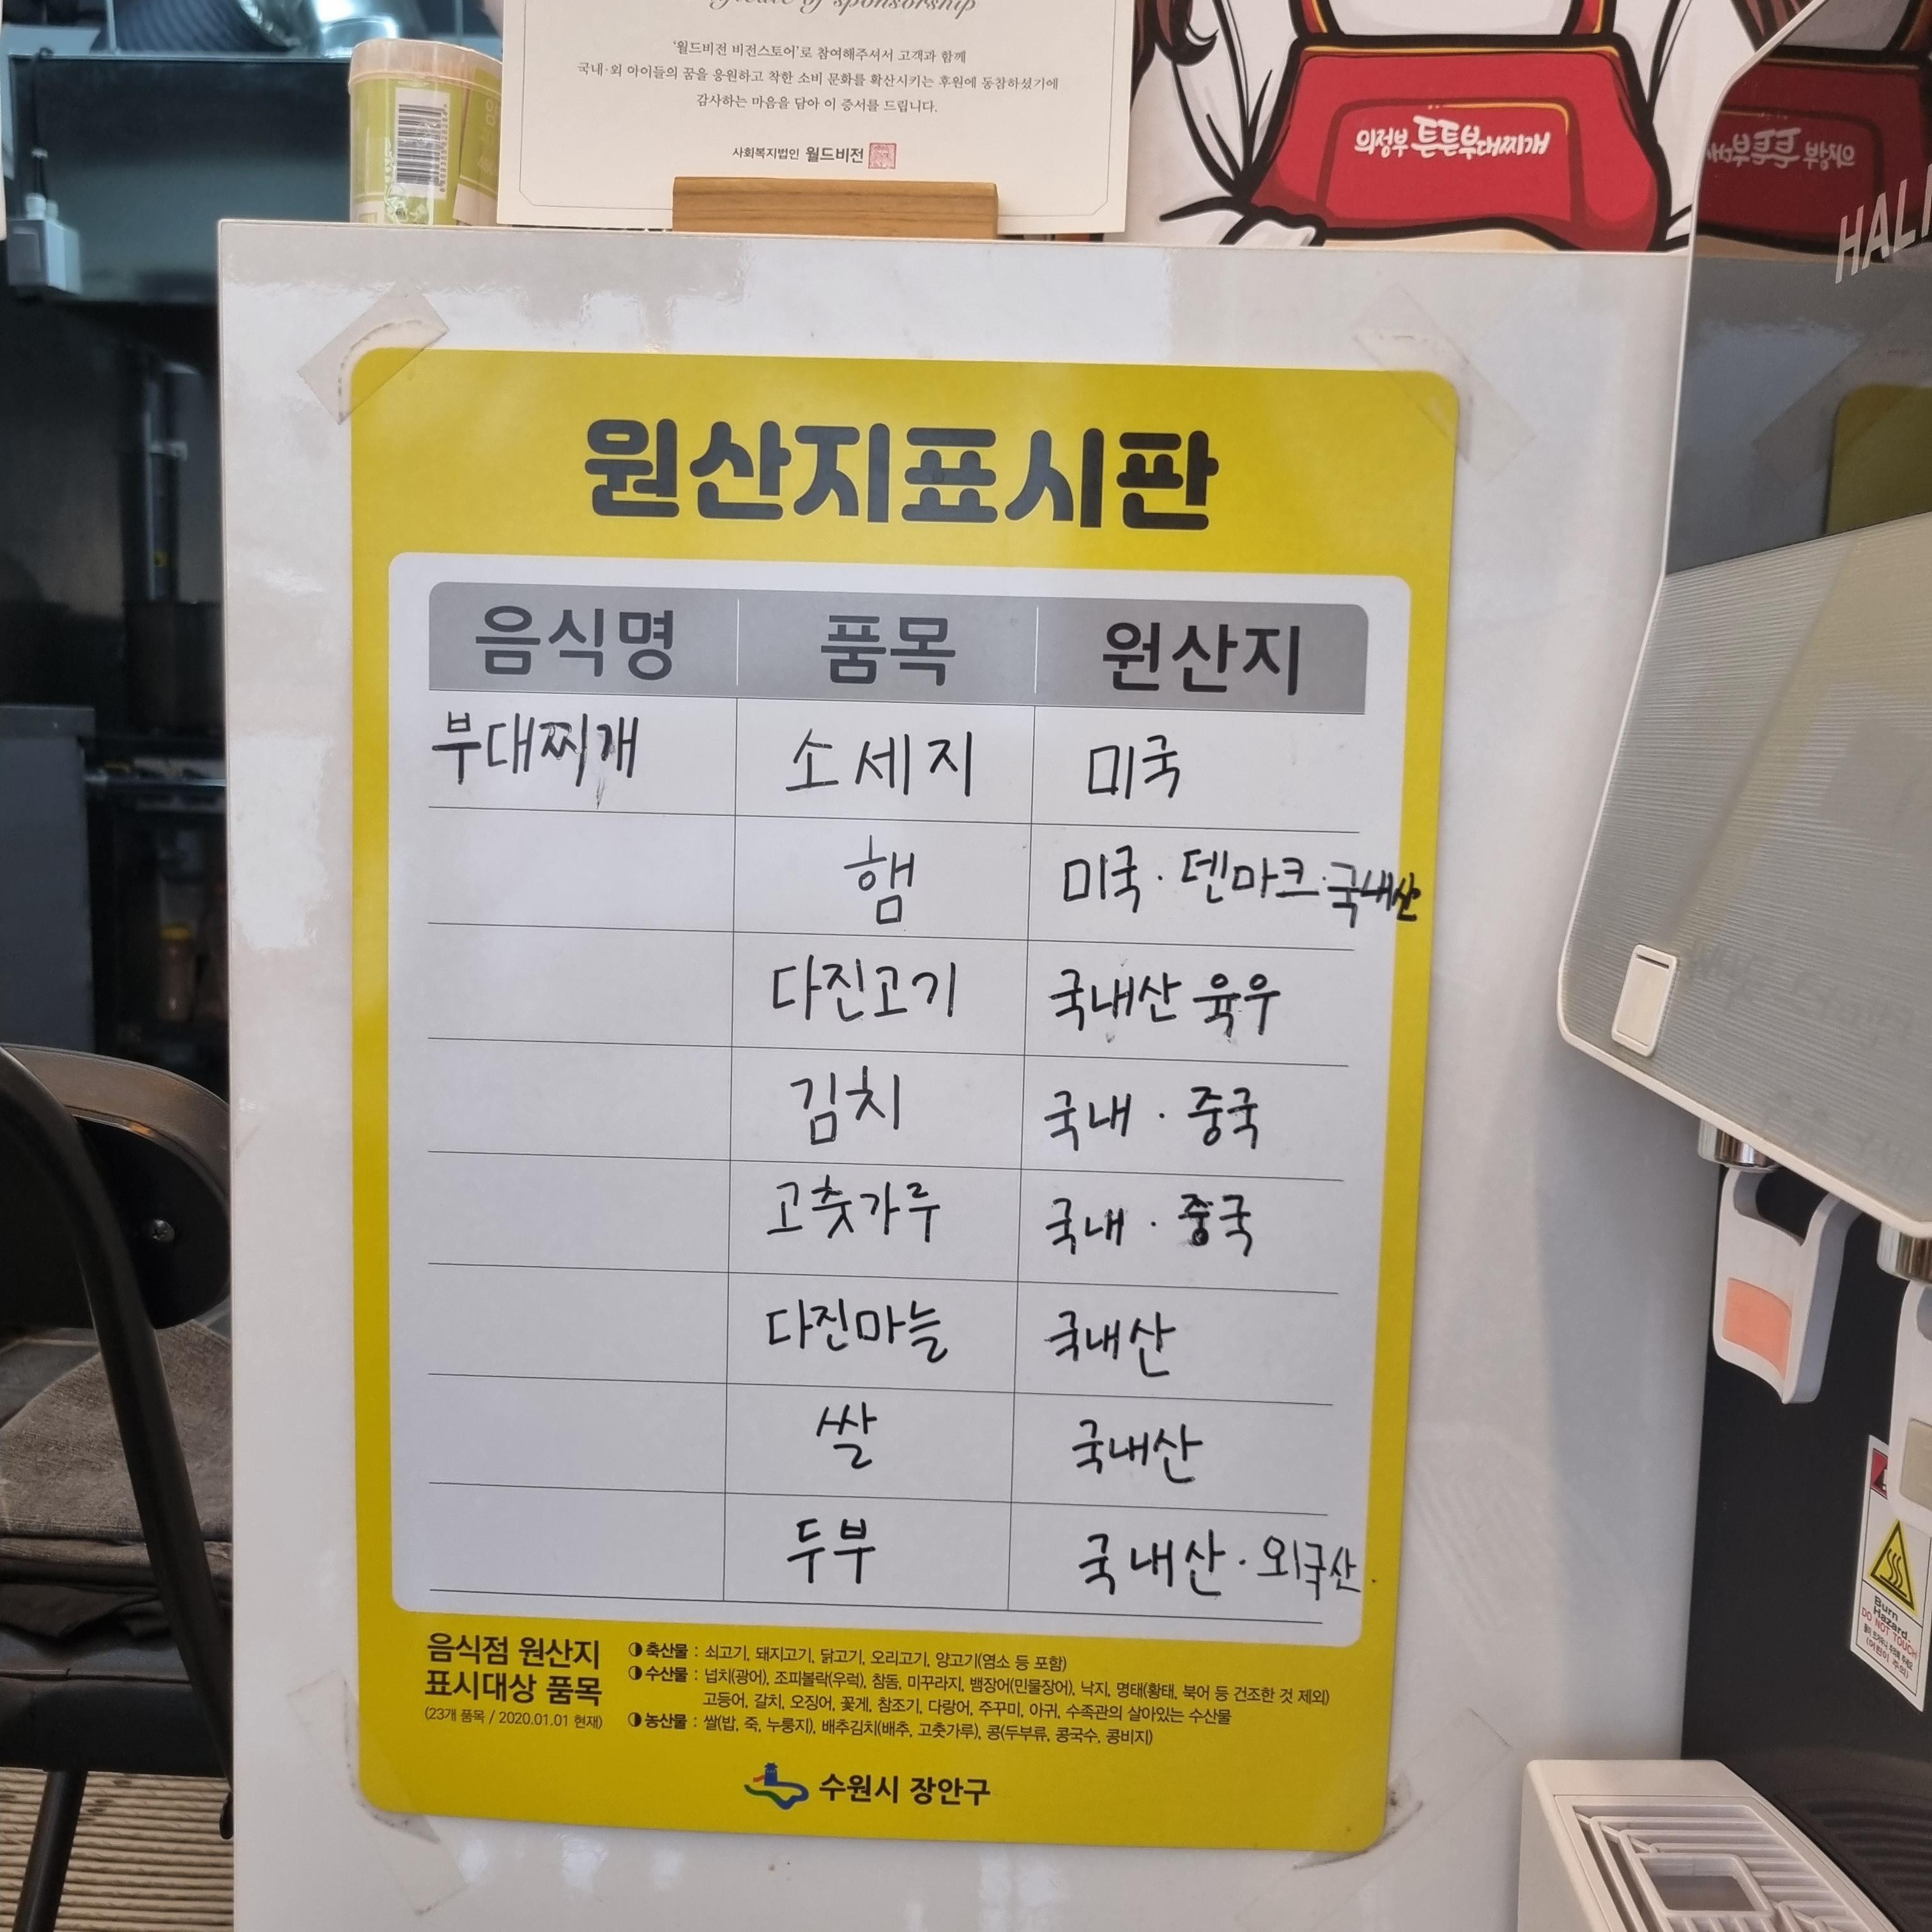 of sponsorship
'월드비전 비전스토어'로 참여해주셔서 고객과 함께
국내·외 아이들의 꿈을 응원하고 착한 소비 문화를 확산시키는 후원에 동참하셨기에
감사하는 마음을 담아 이 증서를 드립니다.
사회복지법인 월드비전
의정부 튼튼부대찌개
원산지표시판
음식명 품목 원산지
부대찌개 소세지 미국
햄 미국·덴마크·국내산
다진고기 국내산 육우
김치 국내·중국
고춧가루 국내·중국
다진마늘 국내산
쌀 국내산
두부 국내산·외국산.
음식점 원산지
표시대상 품목
(23개 품목 / 2020.01.01 현재)
축산물 : 쇠고기, 돼지고기, 닭고기, 오리고기, 양고기(염소 등 포함)
수산물 : 넙치(광어), 조피볼락(우럭), 참돔, 미꾸라지, 뱀장어(민물장어), 낙지, 명태(황태, 북어 등 건조한 것 제외)
고등어, 갈치, 오징어, 꽃게, 참조기, 다랑어, 주꾸미, 아귀, 수족관의 살아있는 수산물
농산물 : 쌀(밥, 죽, 누룽지), 배추김치(배추, 고춧가루), 콩(두부류, 콩국수, 콩비지)
수원시 장안구
Burn
Hazard.
DO NOT TOUCH
(어린이 주의)